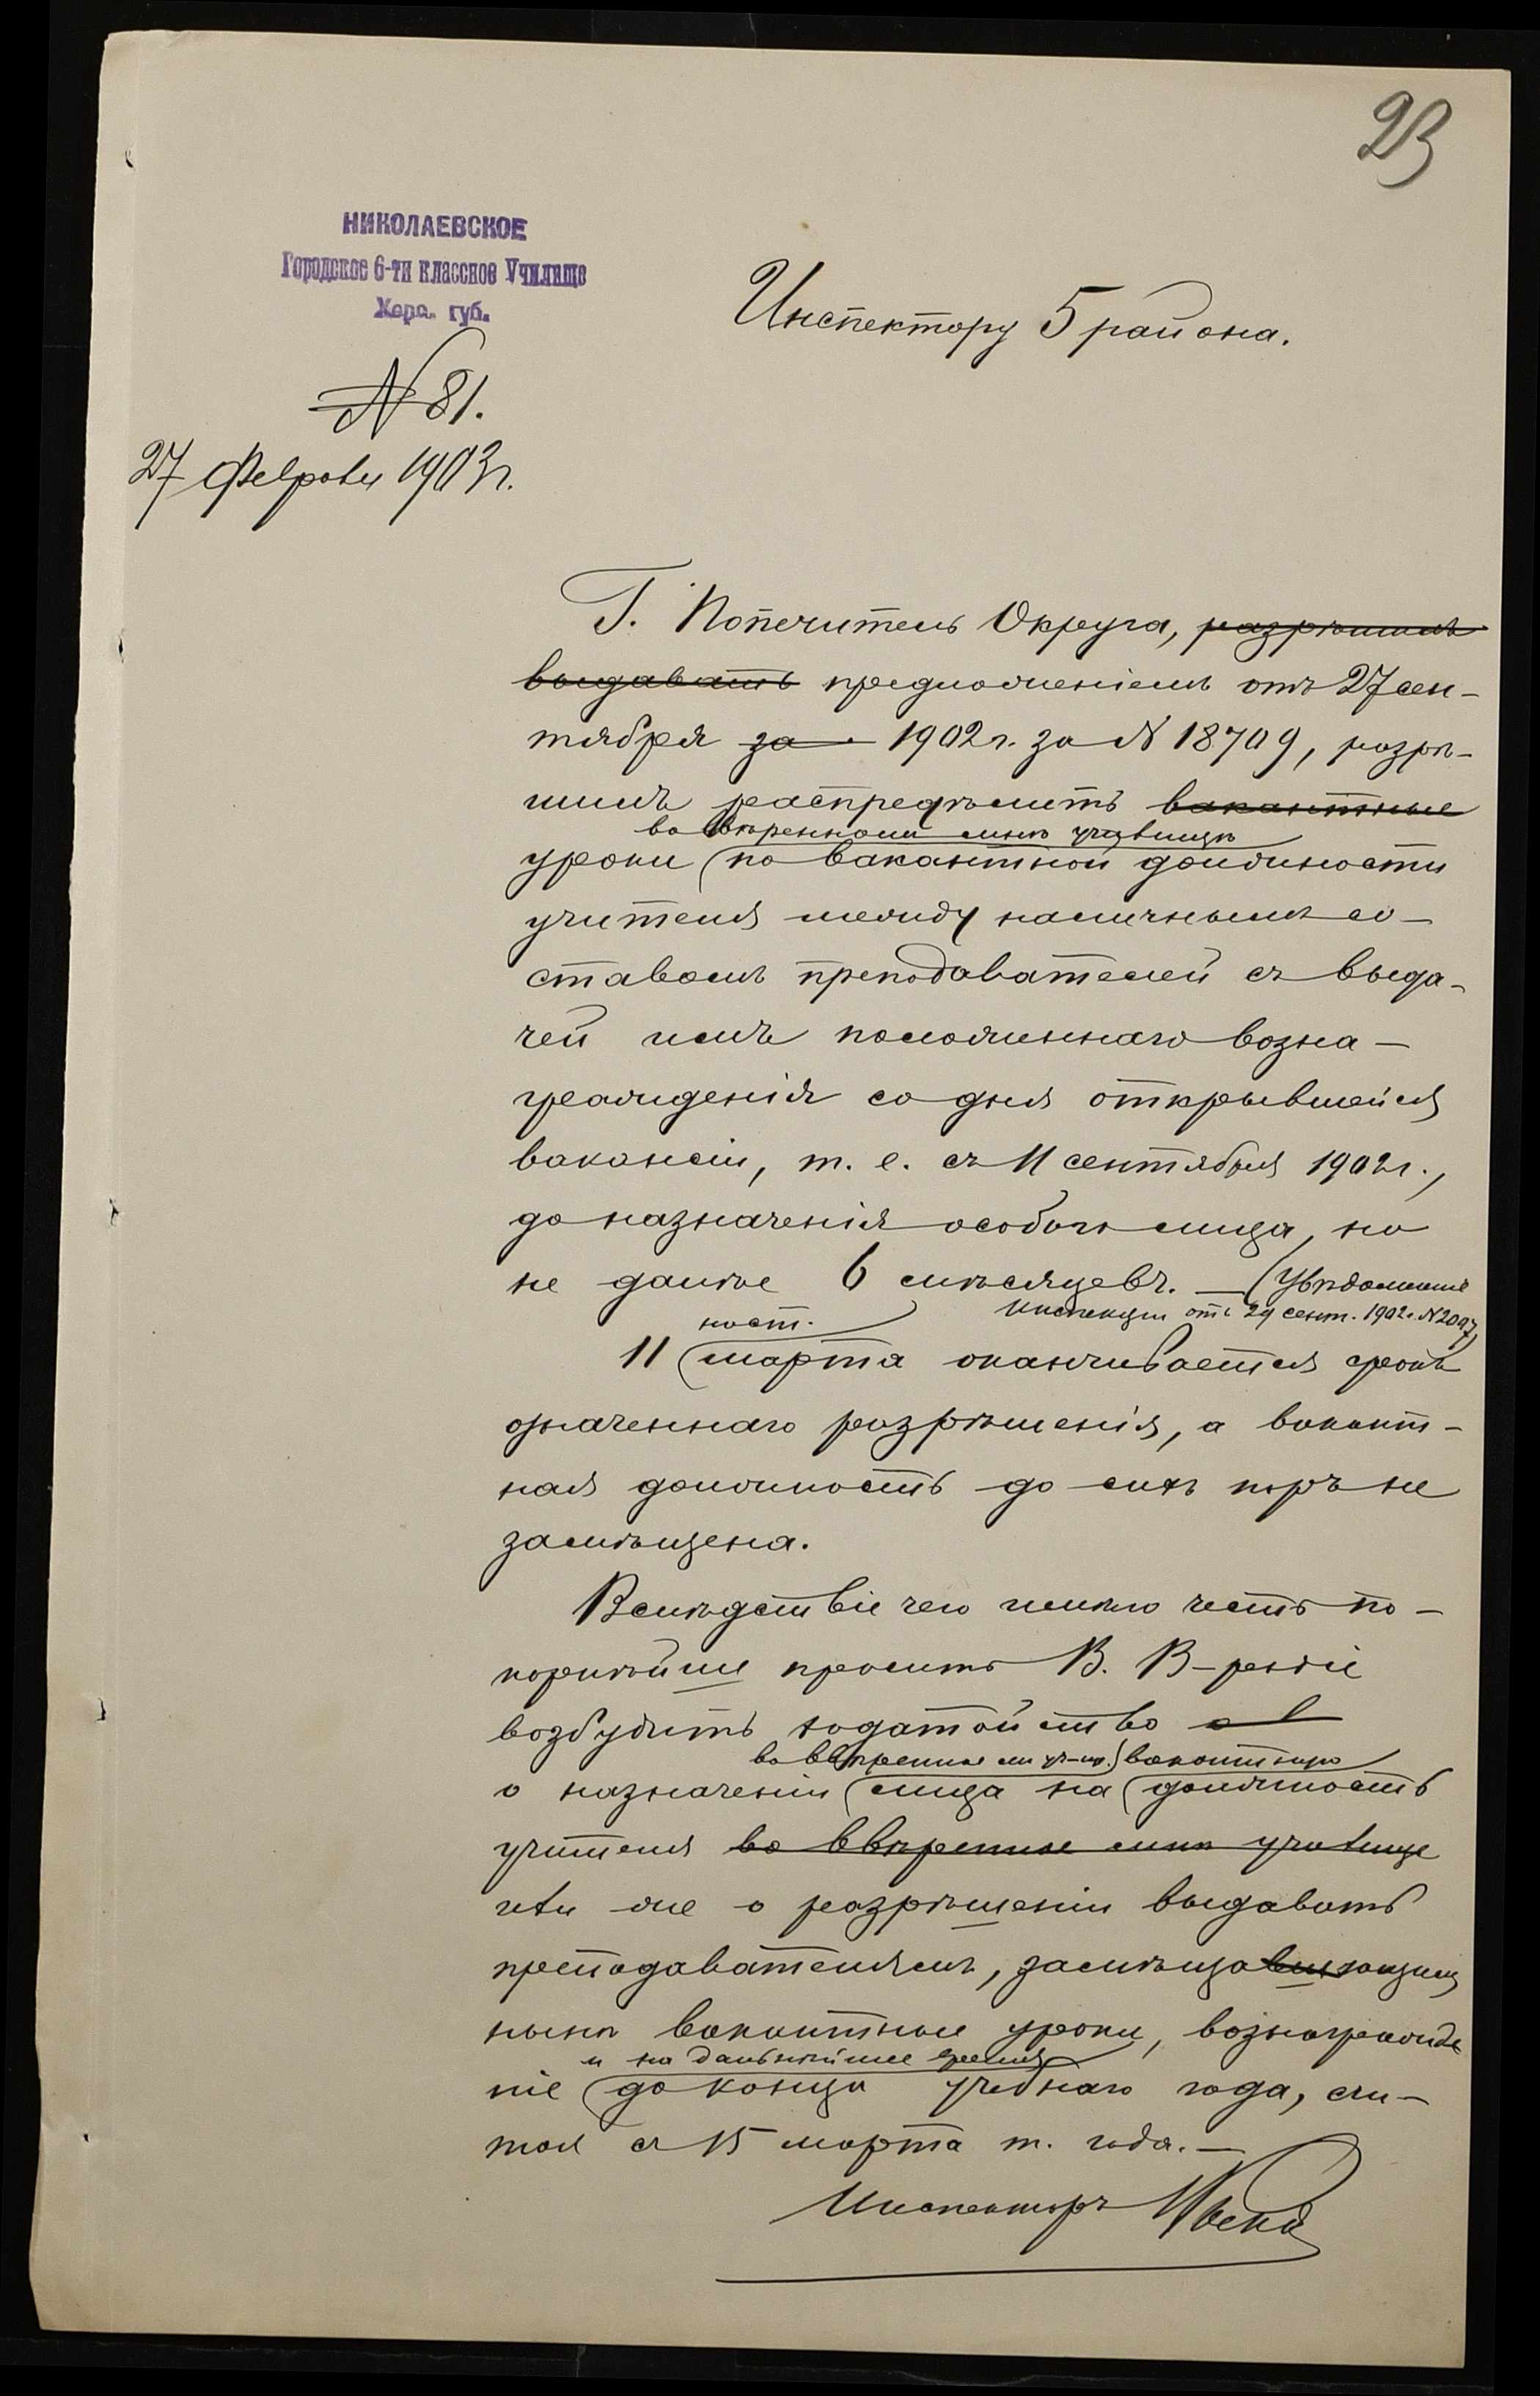 23
НИКОЛАЕВСКОЕ
Городское 6-ти классное Училище
Херс. губ.
Инспектору 5 района.
№ 81.
27 Февраля 1903 г.
Г. Попечитель Округа, разрѣшилъ
выдавать предложеніемъ отъ 27 сен-
тября за 1902 г. за № 18709, разрѣ-
шилъ распредѣлить вакантные
во ввѣренномъ мнѣ училищѣ
уроки по вакантной должности
учителя между наличнымъ со-
ставомъ преподавателей съ выда-
чей имъ положеннаго возна-
гражденія со дня открывшейся
вакансіи, т. е. съ 11 сентября 1902 г.,
до назначенія особого лица, но
не далѣе 6 мѣсяцевъ. — (Увѣдомленіе
Инспекціи отъ 29 сент. 1902 г. № 2097)
наст.
11 марта оканчивается срокъ
означеннаго разрѣшенія, а вакант-
ная должность до сихъ поръ не
замѣщена.
Вслѣдствіе чего имѣю честь по-
корнѣйше просить В. В-родіе
возбудить ходатайство о
во ввѣренное мн уч-ще вакантную
о назначеніи лица на должность
учителя во ввѣренное мнѣ училище
или же о разрѣшеніи выдавать
преподавателямъ, замѣщающимъ
нынѣ вакантные уроки, вознагражде
и на дальнѣйшее время
ніе до конца учебнаго года, счи-
тая съ 15 марта т. года. —
Инспекторъ